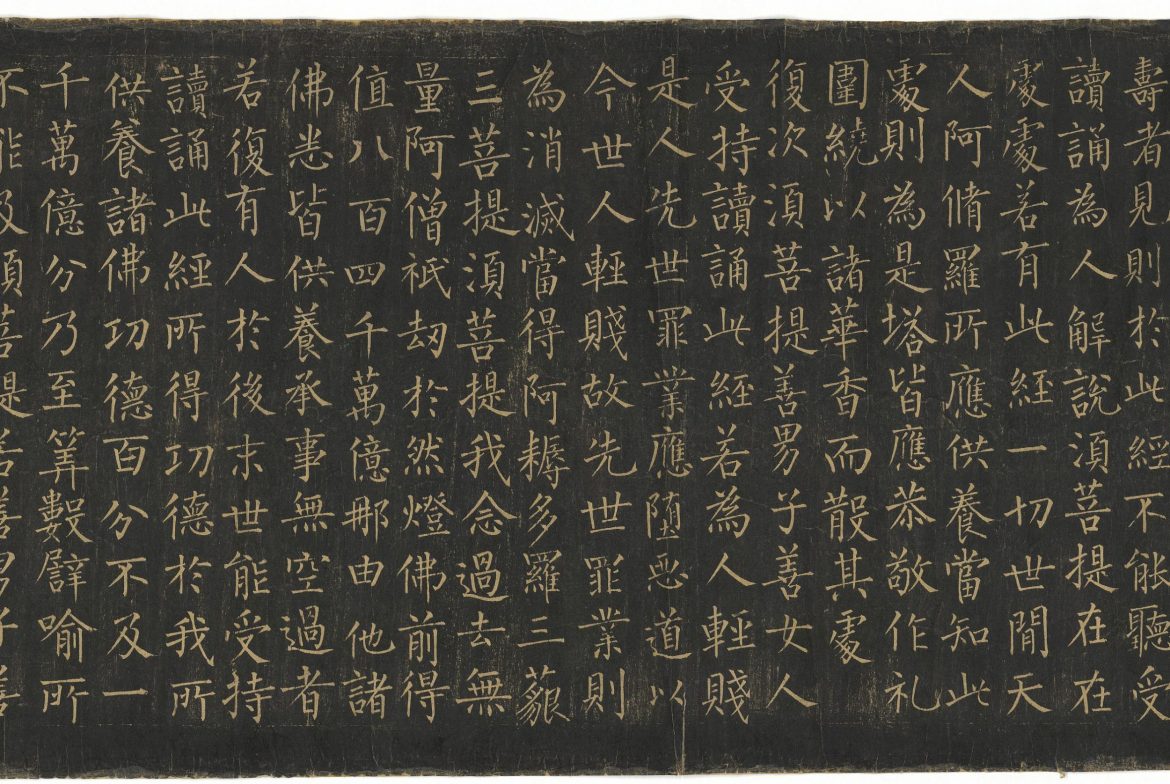 壽者見則於此經不能聽受
讀誦為人解說須菩提在在
處處若有此經一切世間天
人阿脩羅所應供養當知此
處則為是塔皆應恭敬作礼
圍繞以諸華香而散其處
復次須菩提善男子善女人
受持讀誦此經若為人輕賤
是人先世罪業應堕惡道以
今世人輕賤故先世罪業則
為消滅當得阿耨多羅三藐
三菩提須菩提我念過去無
量阿僧祇劫於然燈佛前得
值八百四千萬億那由他諸
佛悉皆供養承事無空過者
若復有人於後末世能受持
讀誦此經所得功德於我所
供養諸佛功德百分不及一
千萬億分乃至筭數譬喻所
不能及須菩提若善男子善